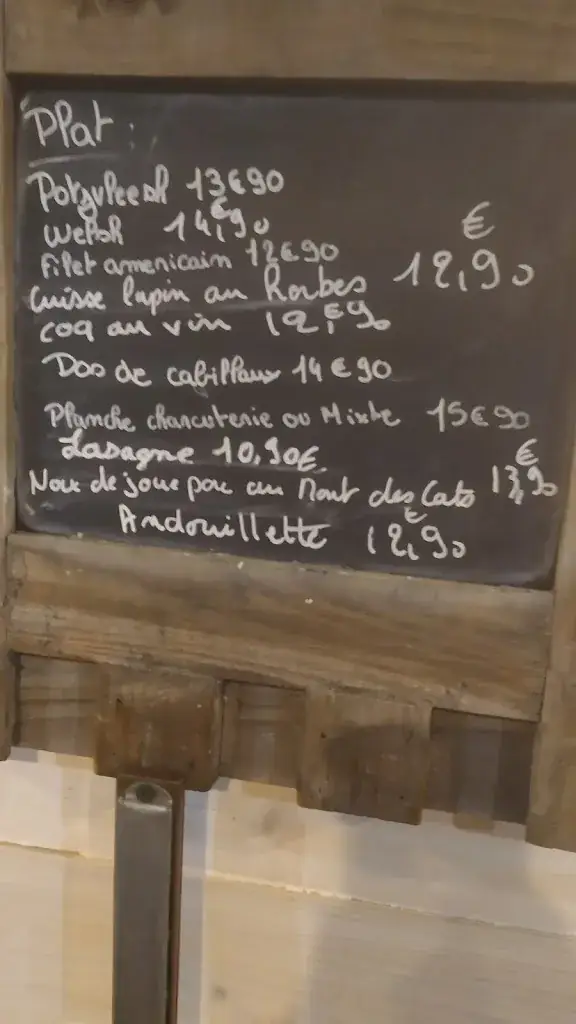 Plat :
Potjvleesh 13€90
Welsh 14,€90
Filet americain 12€90
Cuisse lapin au 12,90 €
coq au vin 12,€90
Dos de cabillaux 14€90
Planche charcuterie ou Mixte 15€90
Lasagne 10,90€
Noix de joue porc au Mont des Cats 13,90 €
Andouillette 12,90 €